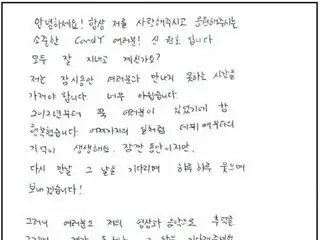 안녕하세요! 항상 저를 사랑해주시고 응원해주시는
소중한 CandY 여러분! 신 원호 입니다
모두 잘 지내고 계신가요?
저는 잠시동안 여러분과 만나지 못하는 시간을
가져야 합니다. 너무 아쉽습니다.
2012년부터 쭉 여러분이 있었기에 참
행복했습니다. 어제까지의 일처럼 데뷔 때부터의
기억이 생생해요. 잠깐 동안이지만,
다시 만날 그 날을 기다리며 하루하루 웃으며
보내겠습니다!
그러니 여러분도 저의 영상과 음악으로 추억을